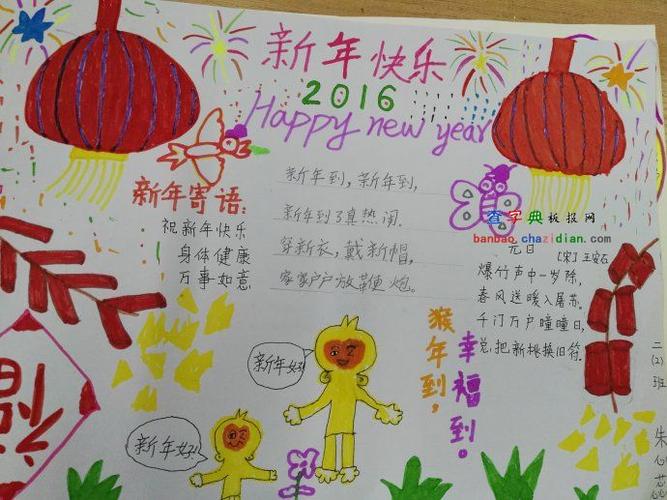 新年快乐
2016
Happy new year
新年寄语:
祝新年快乐
身体健康
万事如意
新年到，新年到，
新年到了真热闹。
穿新衣，戴新帽，
家家户户放鞭炮。
查字典 板报网
banbao.chazidian.com
元日
[宋]王安石
爆竹声中一岁除，
春风送暖入屠苏。
千门万户曈曈日，
总把新桃换旧符。
猴年到，
幸福到。
新年好!
新年好!
福
二(2)班
朱